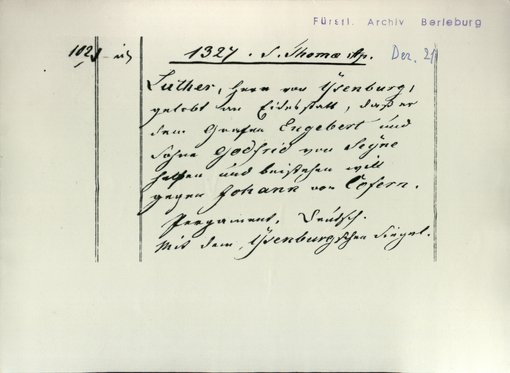 Fürstl. Archiv Berleburg
1327. S. Thomæ Ap. Dez. 21
Luther, Herr von Ysenburg,
gelobt an Eidesstatt, daß er
dem Grafen Engebert und
Sohne Godfrid von Seyne
helfen und beistehen will
gegen Johann von Cofern.
Pergament, Deutsch.
Mit dem Ysenburgschen Siegel.